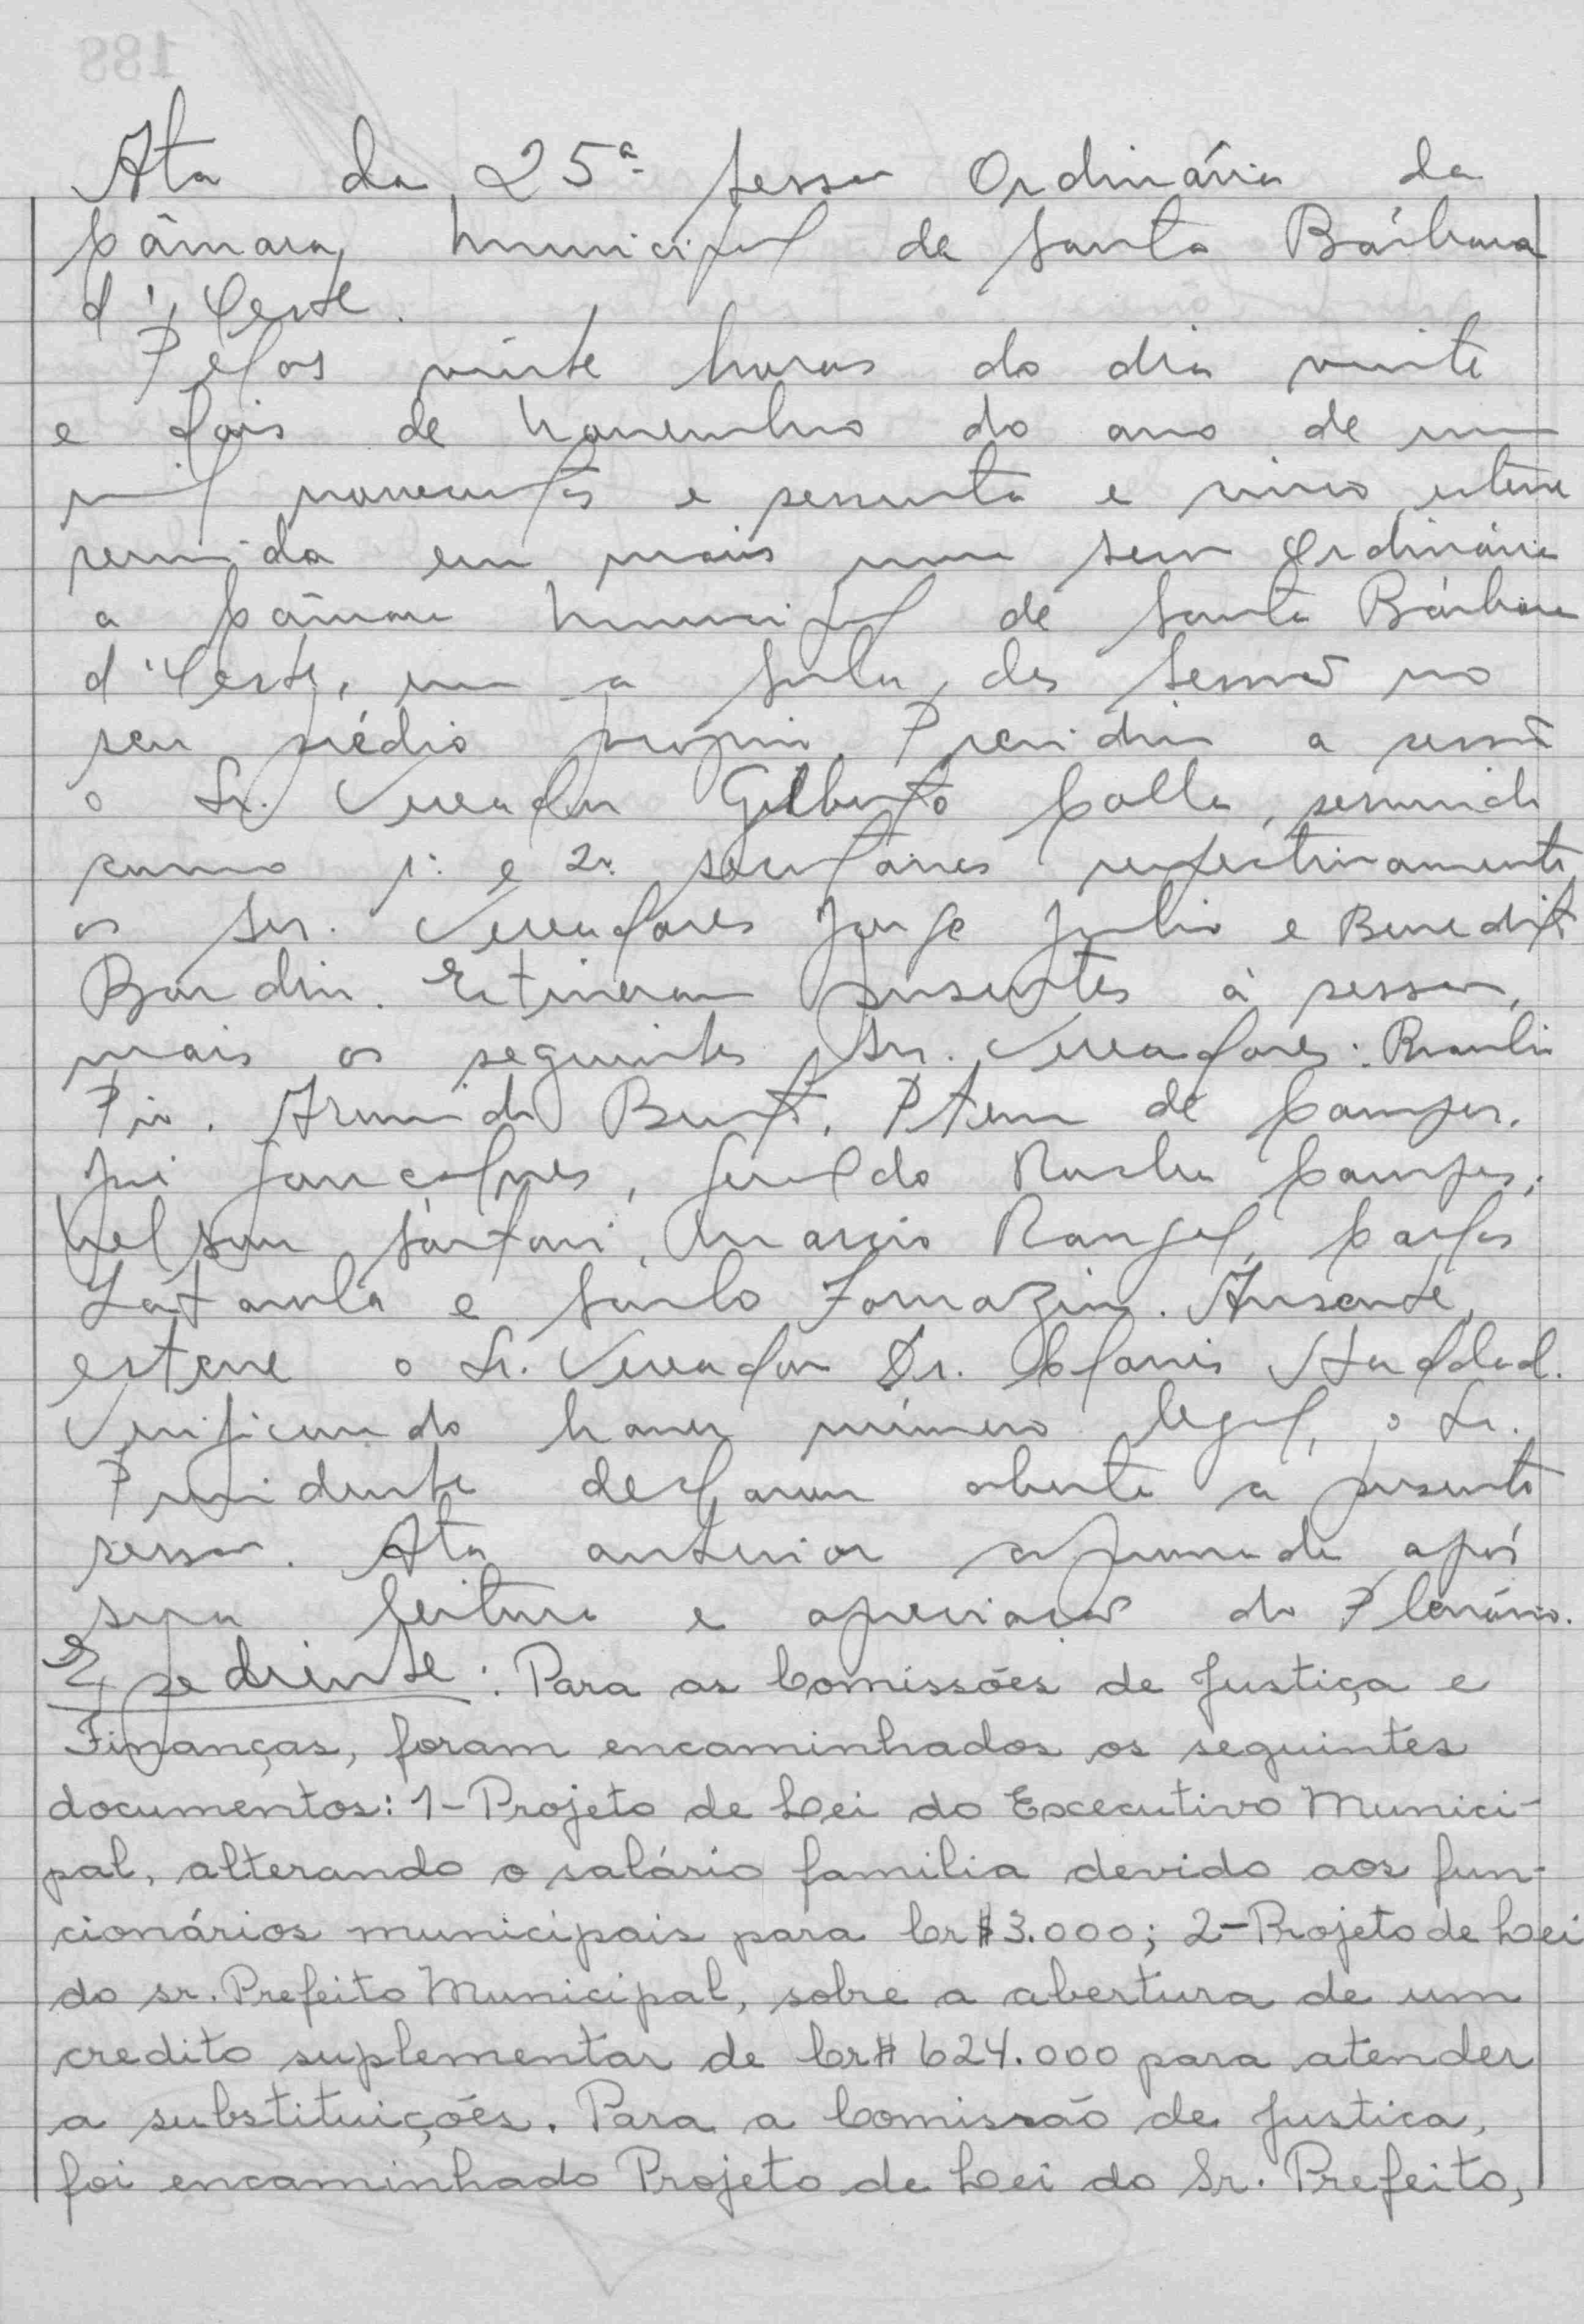 Ata da 25ª sessão Ordinária da
Câmara Municipal de Santa Bárbara
d'Oeste.
Pelas vinte horas do dia vinte
e dois de novembro do ano de um
mil novecentos e sessenta e cinco, esteve
reunida em mais uma sessão Ordinária
a Câmara Municipal de Santa Bárbara
d'Oeste, em a sala das sessões no
seu prédio próprio. Presidiu a sessão
o Sr. Vereador Gilberto Calla, servindo
como 1º e 2º secretários respectivamente
os Srs. Vereadores Jorge Julio e Benedito
Bardin. Estiveram presentes à sessão,
mais os seguintes Srs. Vereadores: Braulio
Pio, Armindo Bent, de Campos,
Gonçalves, Geraldo Rocha Campos,
Nelson Sartori, Marcio Rangel, Carlos
e Saulo Fornazin. Ausente,
esteve o Sr. Vereador Dr. Cloris Haddad.
Verificando haver número legal, o Sr.
Presidente declarou aberta a presente
sessão. Ata anterior aprovada após
sua leitura e apreciação do Plenário.
Expediente: Para as Comissões de Justiça e
Finanças, foram encaminhados os seguintes
documentos: 1-Projeto de Lei do Executivo Munici-
pal, alterando o salário familia devido aos fun-
cionários municipais para Cr$3.000; 2-Projeto de Lei
do sr. Prefeito Municipal, sobre a abertura de um
credito suplementar de Cr$ 624.000 para atender
a substituições. Para a Comissão de Justica,
foi encaminhado Projeto de Lei do Sr. Prefeito,